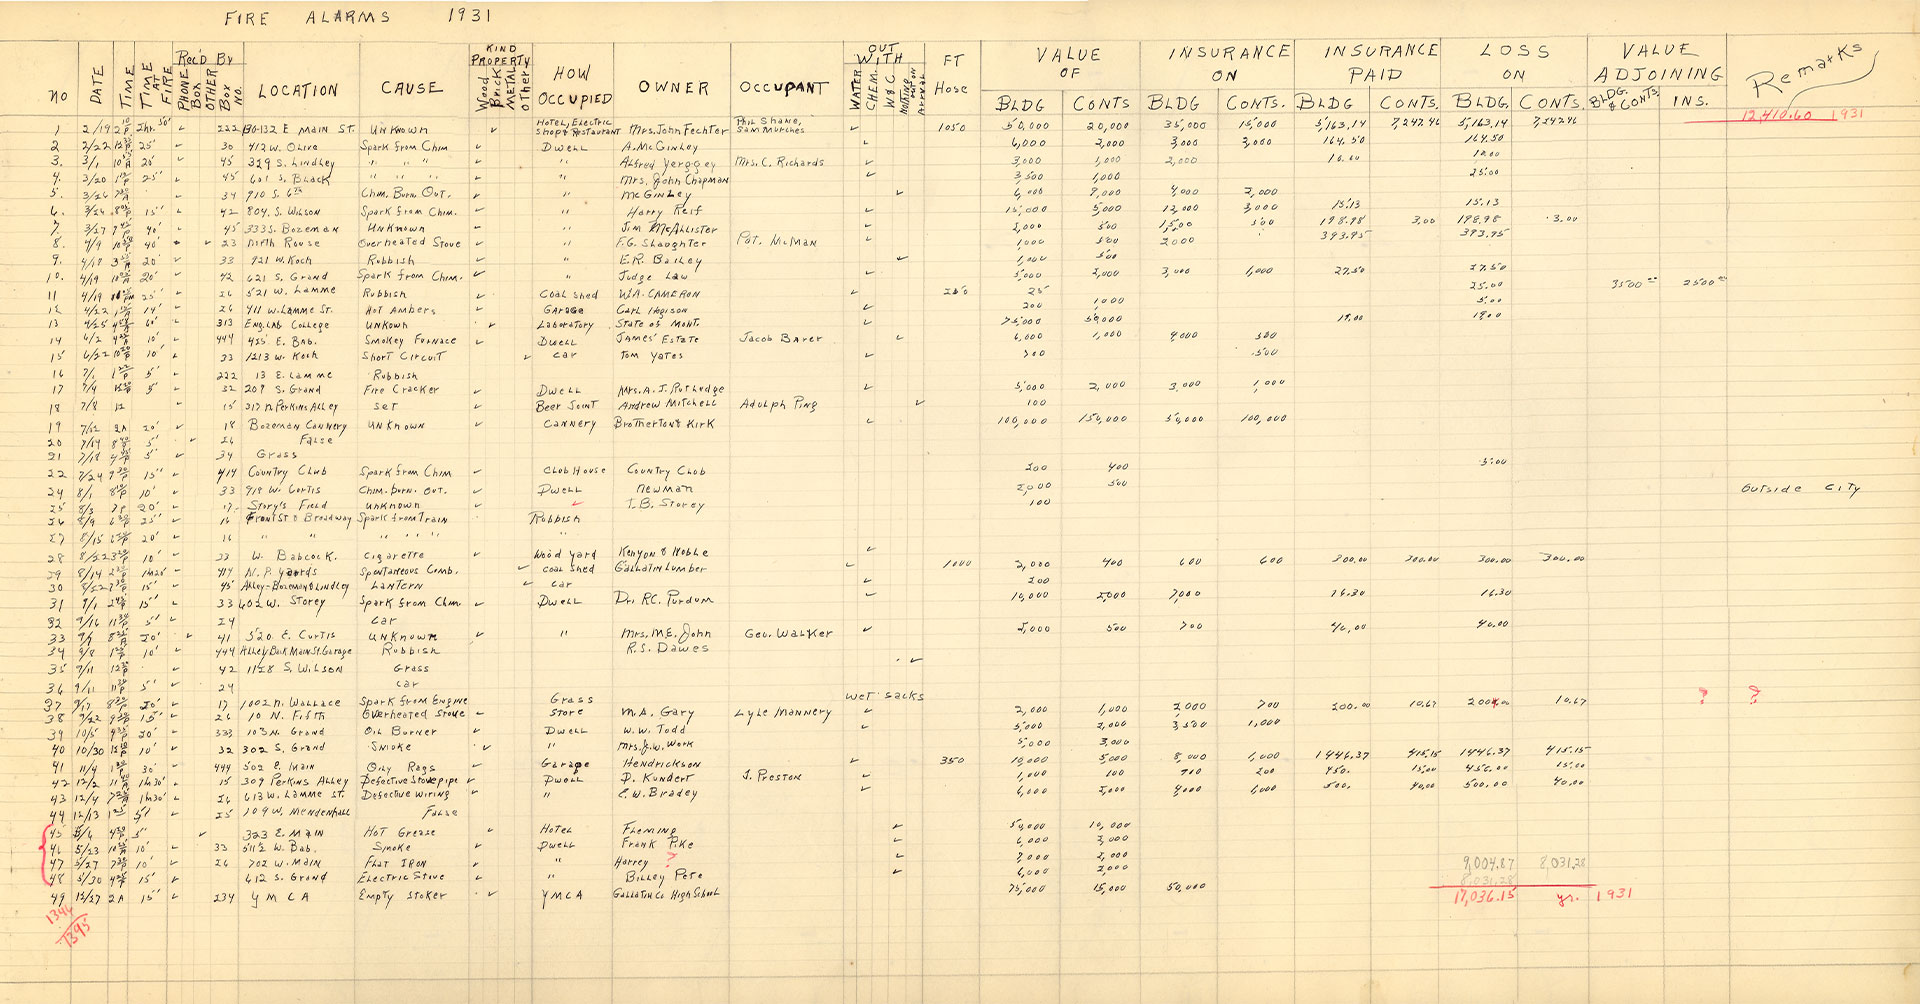 FIRE ALARMS 1931
no DATE TIME TIME AT FIRE Rec'd By PHONE BOX OTHER Box NO. LOCATION CAUSE KIND PROPERTY Wood Brick METAL Other HOW OCCUPIED OWNER OCCUPANT OUT WITH WATER CHEM. W&C NOTHING ARRIVAL FT Hose VALUE OF BLDG CONTS INSURANCE ON BLDG CONTS. INSURANCE PAID BLDG CONTS. LOSS ON BLDG. CONTS. VALUE ADJOINING BLDG. & CONTS. INS. Remarks
12,410.60 1931
1 2/19 222 130-132 E Main St. Unknown Hotel, Electric Shop & Restaurant Mrs. John Fechter Phil Shane, Sam Murches 1050 50,000 20,000 35,000 15,000 5,163.14 7,242.46 5,163.14 7,242.46
2 2/22 25' 30 412 W. Olive Spark from Chim Dwell A. McGinley 6,000 2,000 3,000 3,000 164.50 164.50
3. 3/1 20' 45 329 S. Lindley " " " " Alfred Yerggey Mrs. C. Richards 3,000 1,000 2,000 10.00 10.00
4. 3/20 25" 45 601 S. Black " " " " Mrs. John Chapman 3,500 1,000 25.00
5. 3/26 34 910 S. 6th Chim. Burn. Out. " McGinley 6,000 2,000 4,000 2,000 15.13 15.13
6. 3/26 15" 42 804. S. Wilson Spark from Chim. " Harry Reif 15,000 5,000 12,000 3,000
7. 3/27 40' 45 333 S. Bozeman Unknown " Jim McAllister 2,000 500 1,500 500 198.98 3.00 198.98 3.00
8. 4/9 40' 23 North Rouse Overheated Stove " F.G. Slaughter Pat. McMan 1,000 500 2000 393.95 393.95
9. 4/18 20' 33 921 W. Koch Rubbish " E.R. Bailey 1,000 500
10. 4/19 20' 42 621 S. Grand Spark from Chim. " Judge Law 5,000 2,000 3,000 1,000 27.50 27.50
11 4/19 25" 26 521 W. Lamme Rubbish Coal Shed W.A. Cameron 250 25 25.00 3500 2500
12 4/22 14' 26 411 W. Lamme St. Hot Ambers Garage Carl Hogison 200 1000 5.00
13 4/25 60' 313 Eng. Lab College Unkown Laboratory State of Mont. 75,000 50,000 19.00 19.00
14 6/2 10' 444 425 E. Bab. Smokey Furnace Dwell James Estate Jacob Baker 6,000 1,000 4,000 500
15 6/22 10' 33 1213 W. Koch Short Circuit Car Tom Yates 700 500
16 7/1 5' 222 13 E. Lamme Rubbish
17 7/4 5' 32 209 S. Grand Fire Cracker Dwell Mrs. A. J. Rutledge 5,000 2,000 3,000 1,000
18 7/8 12 15 317 N Perkins Alley Set Beer Joint Andrew Mitchell Adolph Ping 100
19 7/12 2A 20' 18 Bozeman Cannery Unknown Cannery Brotherton & Kirk 100,000 150,000 50,000 100,000
20 7/14 5' 26 False
21 7/18 5' 34 Grass
22 7/24 15" 414 Country Club Spark from Chim Club House Country Club 200 400 5.00
24 8/1 10' 33 919 W. Curtis Chim. burn. out. Dwell Newman 2,000 500 Outside City
25 8/3 7P 20' 17 Story's Field Unknown T. B. Storey 100
26 8/9 25" 16 Front St & Broadway Spark from Train Rubbish
27 8/15 20' 16 " " " " " " "
28 8/22 10' 33 W. Babcock. Cigarette Wood yard Kenyon & Noble
29 8/14 1h20' 414 N. P. yards Spontaneous Comb. Coal Shed Gallatin Lumber 1000 2,000 400 600 600 300.00 300.00 300.00 300.00
30 8/22 15' 45 Alley-Bozeman & Lindley Lantern Car 200
31 9/1 15" 33 602 W. Storey Spark from Chim Dwell Dr. R.C. Purdum 10,000 2,000 7,000 16.30 16.30
32 9/16 5" 24 Car
33 9/7 20' 41 520 E. Curtis Unknown " Mrs. M.E. John Geo. Walker 2,000 500 700 40.00 40.00
34 9/8 10' 444 Alley Back Main St. Garage Rubbish R.S. Dawes
35 9/11 42 1128 S. Wilson Grass
36 9/11 5" 24 Car
37 9/17 20' 17 1002 N. Wallace Spark from Engine Grass Wet Sacks ? ?
38 9/22 15" 26 10 N. Fifth Overheated Stove Store M.A. Gary Lyle Mannery 2,000 1,000 2,000 700 200.00 10.67 200.00 10.67
39 10/5 20' 333 103 N. Grand Oil Burner Dwell W. W. Todd 5,000 2,000 3,500 1,000
40 10/30 10' 32 302 S. Grand Smoke " Mrs. J.W. Work 5,000 3,000
41 11/4 30' 444 502 E. Main Oily Rags Garage Hendrickson 350 10,000 5,000 8,000 1,000 1446.37 415.15 1446.37 415.15
42 12/2 1h30' 15 309 Perkins Alley Defective Stovepipe Dwell D. Kundert J. Preston 1,000 100 700 200 450. 15.00 450.00 15.00
43 12/4 1h30' 26 613 W. Lamme St. Defective Wiring " E.W. Bradey 6,000 2,000 4,000 1,000 500. 40.00 500.00 40.00
44 12/13 5' 25 109 W. Mendenhall False
45 5/6 5" 323 E. Main Hot Grease Hotel Fleming 50,000 10,000
46 5/23 10' 33 511½ W. Bab. Smoke Dwell Frank Pike 6,000 2,000
47 5/27 10' 26 702 W. Main Flat Iron " Harrey ? 7,000 2,000 9,004.87 8,031.28
48 5/30 15' 612 S. Grand Electric Stove " Billey Pete 6,000 2,000 8,031.28
49 12/27 2A 15" 234 YMCA Empty Stoker YMCA Gallatin Co High School 75,000 15,000 50,000 17,036.15 yr. 1931
1344
1395